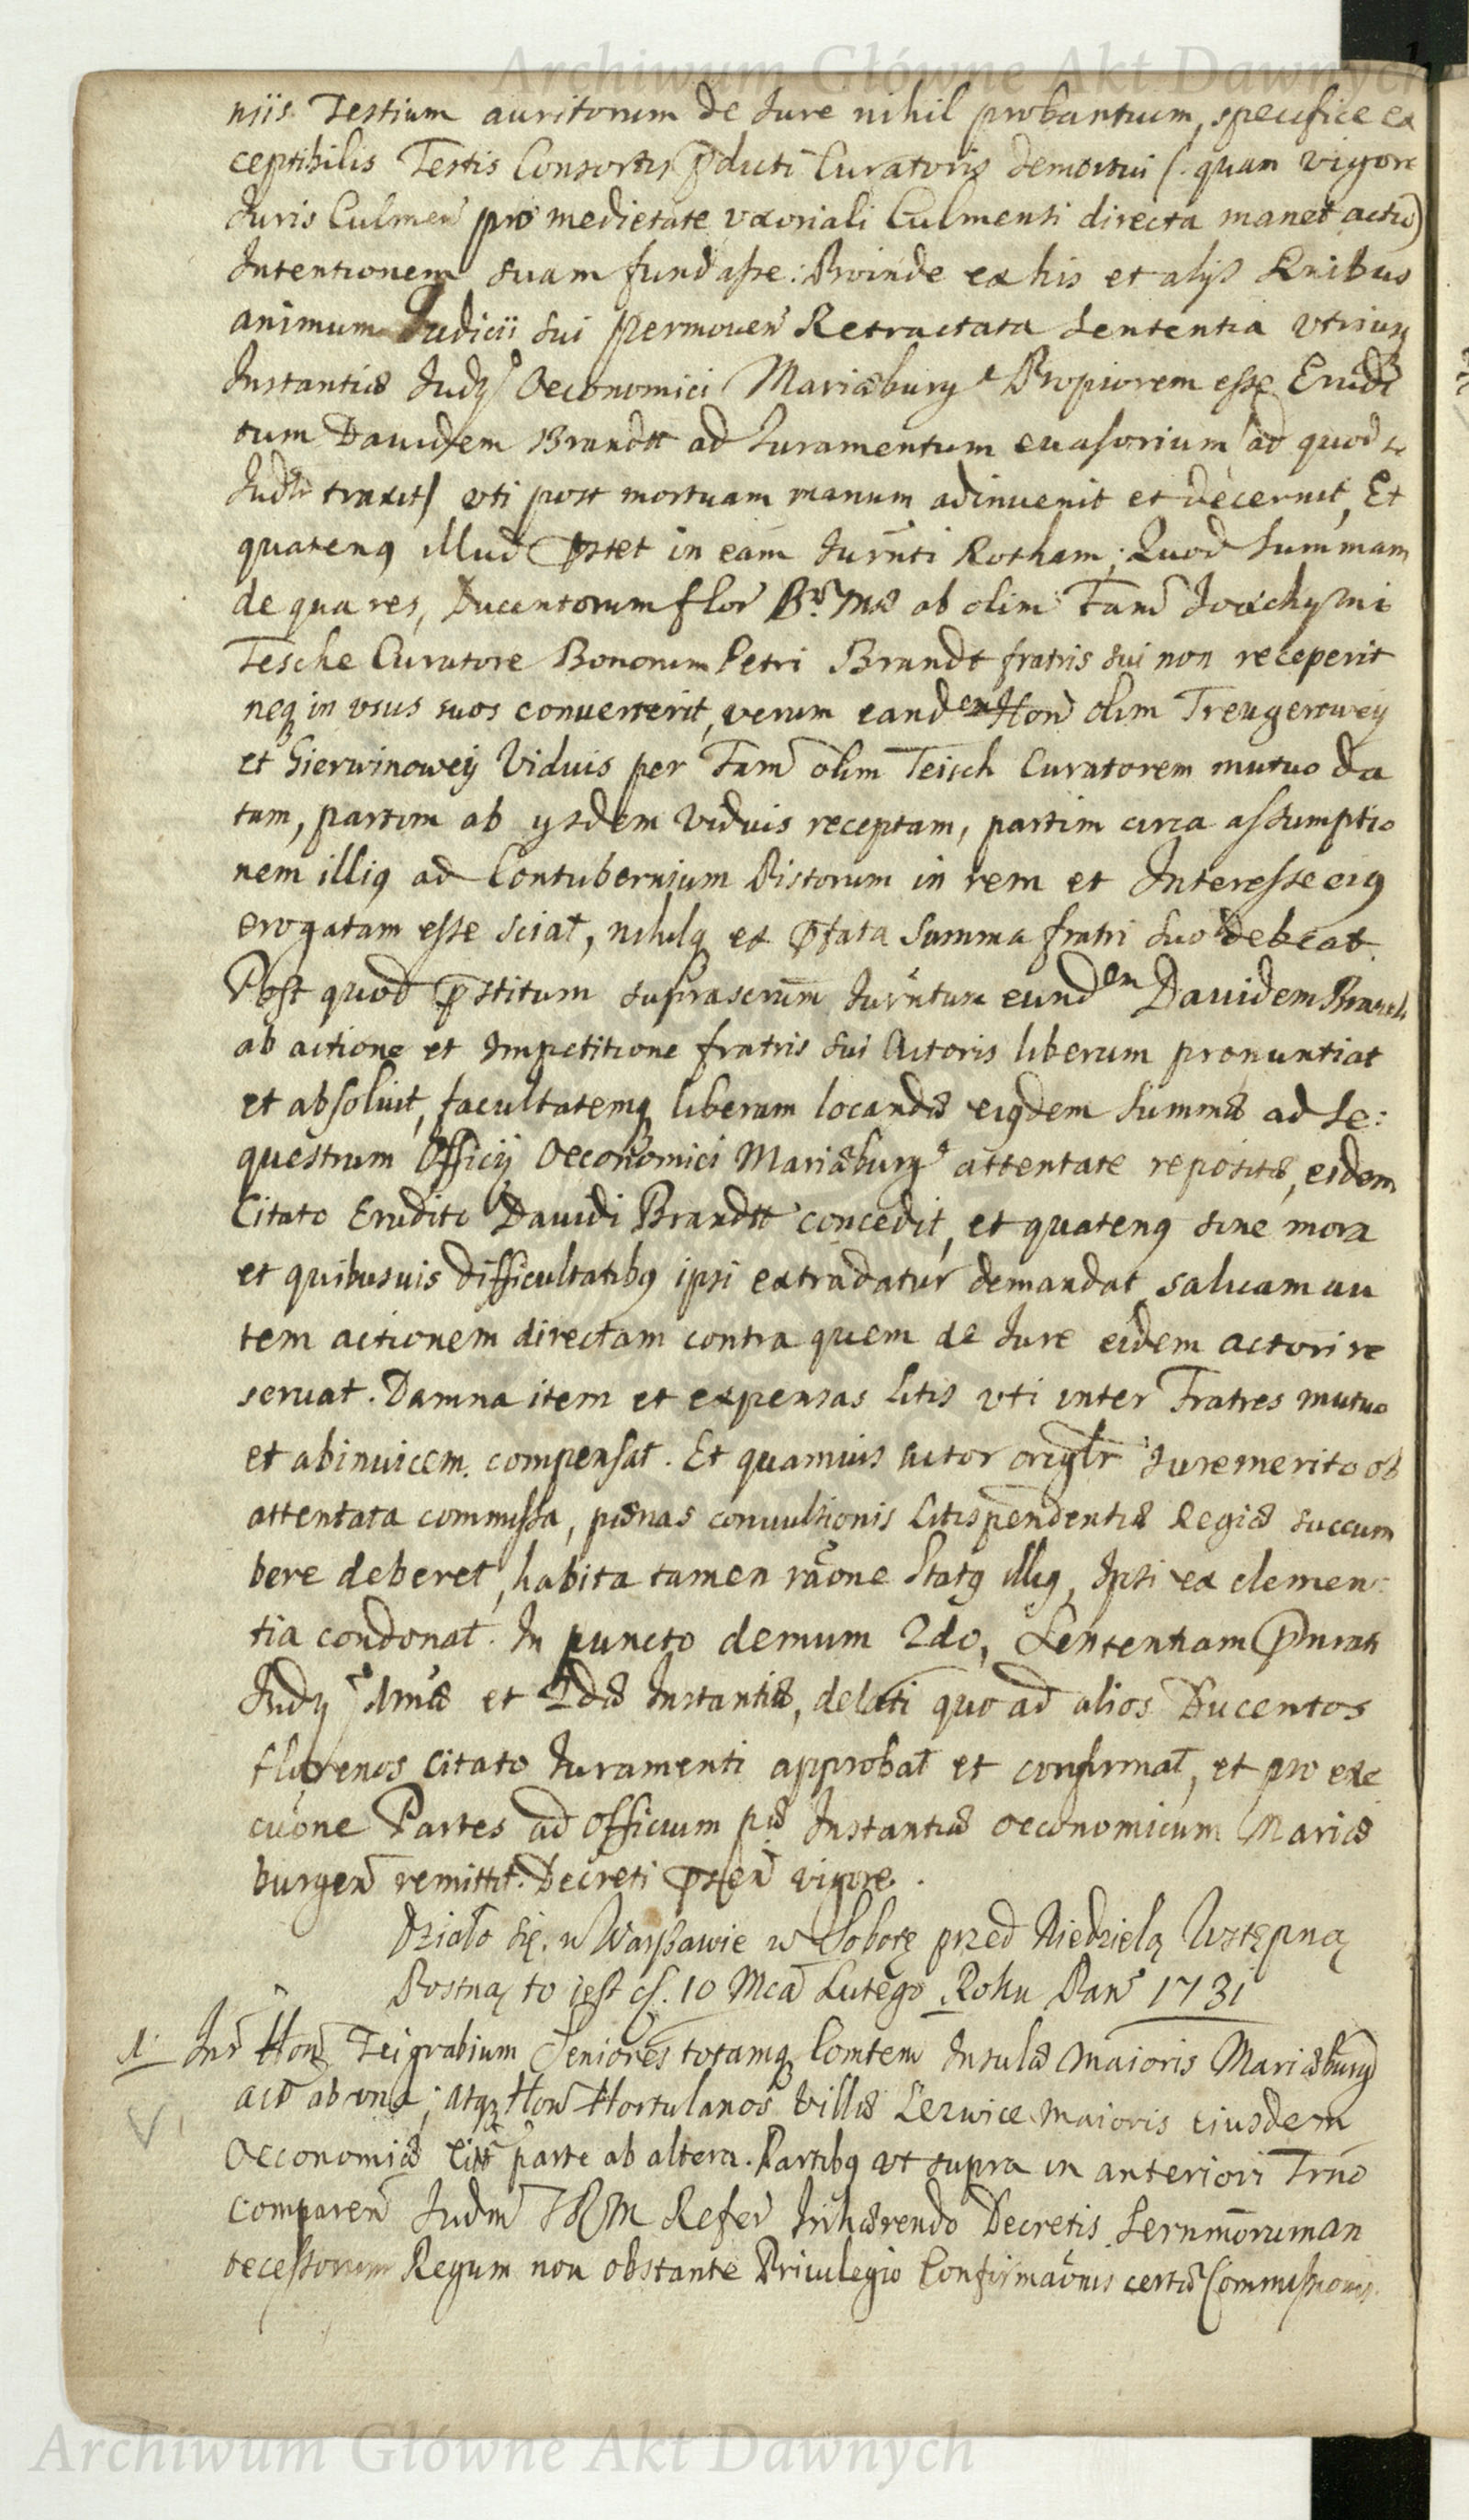 Archiwum Główne Akt Dawnych
niis Testium auritorum de Iure nihil probantium, specifice ex
ceptibilis Testis Consortis pducti Curatoris demortui (quam vigore
Iuris Culmen pro medietate uxoriali Culmensi directa manet actio)
Intentionem suam fundasse: Proinde ex his et alijs Rnibus
animum Iudicii sui permoven Retractata Sententia utriusq
Instantiæ Iudij Oeconomici Mariæburg Propiorem esse Erudi
tum Davidem Brandtt ad Iuramentum evasorium ad quod se
traxit) uti post mortuam manum adinvenit et decernit, Et
quatenq illud pstet in eam Iurnti Rotham; Quod Summam
de qua res, Ducentorum flor ab olim Fam Ioachymi
Tesche Curatore Bonorum Petri Brandt fratris sui non receperit
neq in usus suos converterit, verum eandem Hon olim Treugerowey
et Gierwinowey Viduis per Fam olim Teisch Curatorem mutuo da
tam, partim ab ysdem Viduis receptam, partim circa assumptio
nem illiq ad Contubernium Pistorum in rem et Interesse eiq
erogatam esse sciat, nihilq ex pfata Summa fratri suo debeat.
Post quod pstitum suprascrum Iurntum eundem Davidem Brandt
ab actione et Impetitione fratris sui Actoris liberum pronuntiat
et absoluit, facultatemq liberam locandæ eiqdem Summæ ad Se:
questrum Officij Oeconomici Mariæburg attentate repositæ, eidem
Citato Erudito Davidi Brandtt concedit, et quatenq sine mora
et quibusvis difficultatibq ipsi extradatur demandat, salvam au
tem actionem directam contra quem de Iure eidem actori re
servat. Damna item et expensas Litis uti inter Fratres mutuo
et abinvicem compensat. Et quamvis actor origlr Iure merito ob
attentata commissa, pænas convulsionis Litispendentiæ Regiæ succum
bere deberet, habita tamen raone Statq illiq, Ipsi ex clemen:
tia condonat. In puncto demum 2do, Sententiam pnrati
Iudij 1mæ et 2dæ Instantiæ, delati quo ad alios Ducentos
florenos citato Iuramenti approbat et confirmat, et pro exe
cuone Partes ad Officium pæ Instantiæ oeconomicum Mariæ
burgen remittit. Decreti psen vigore.
Działo się w Warszawie w Sobotę przed Niedzielą Wstępną
Postną to jest d. 10 Mca Lutego Roku Pan 1731
1. Intr Hon Teigrabium Seniores totamq Comtem Insulæ Maioris Mariæburg
act ab una; atq Hon Hortulanos Villæ Lezwice maioris eiusdem
Oeconomiæ Citt parte ab altera. Partibq ut supra in anteriori Trno
comparen Iudm SRM Refer Inhærendo Decretis Sernmorum an
tecessorum Regum non obstante Privilegio Confirmaonis certæ Commissionis
Archiwum Główne Akt Dawnych